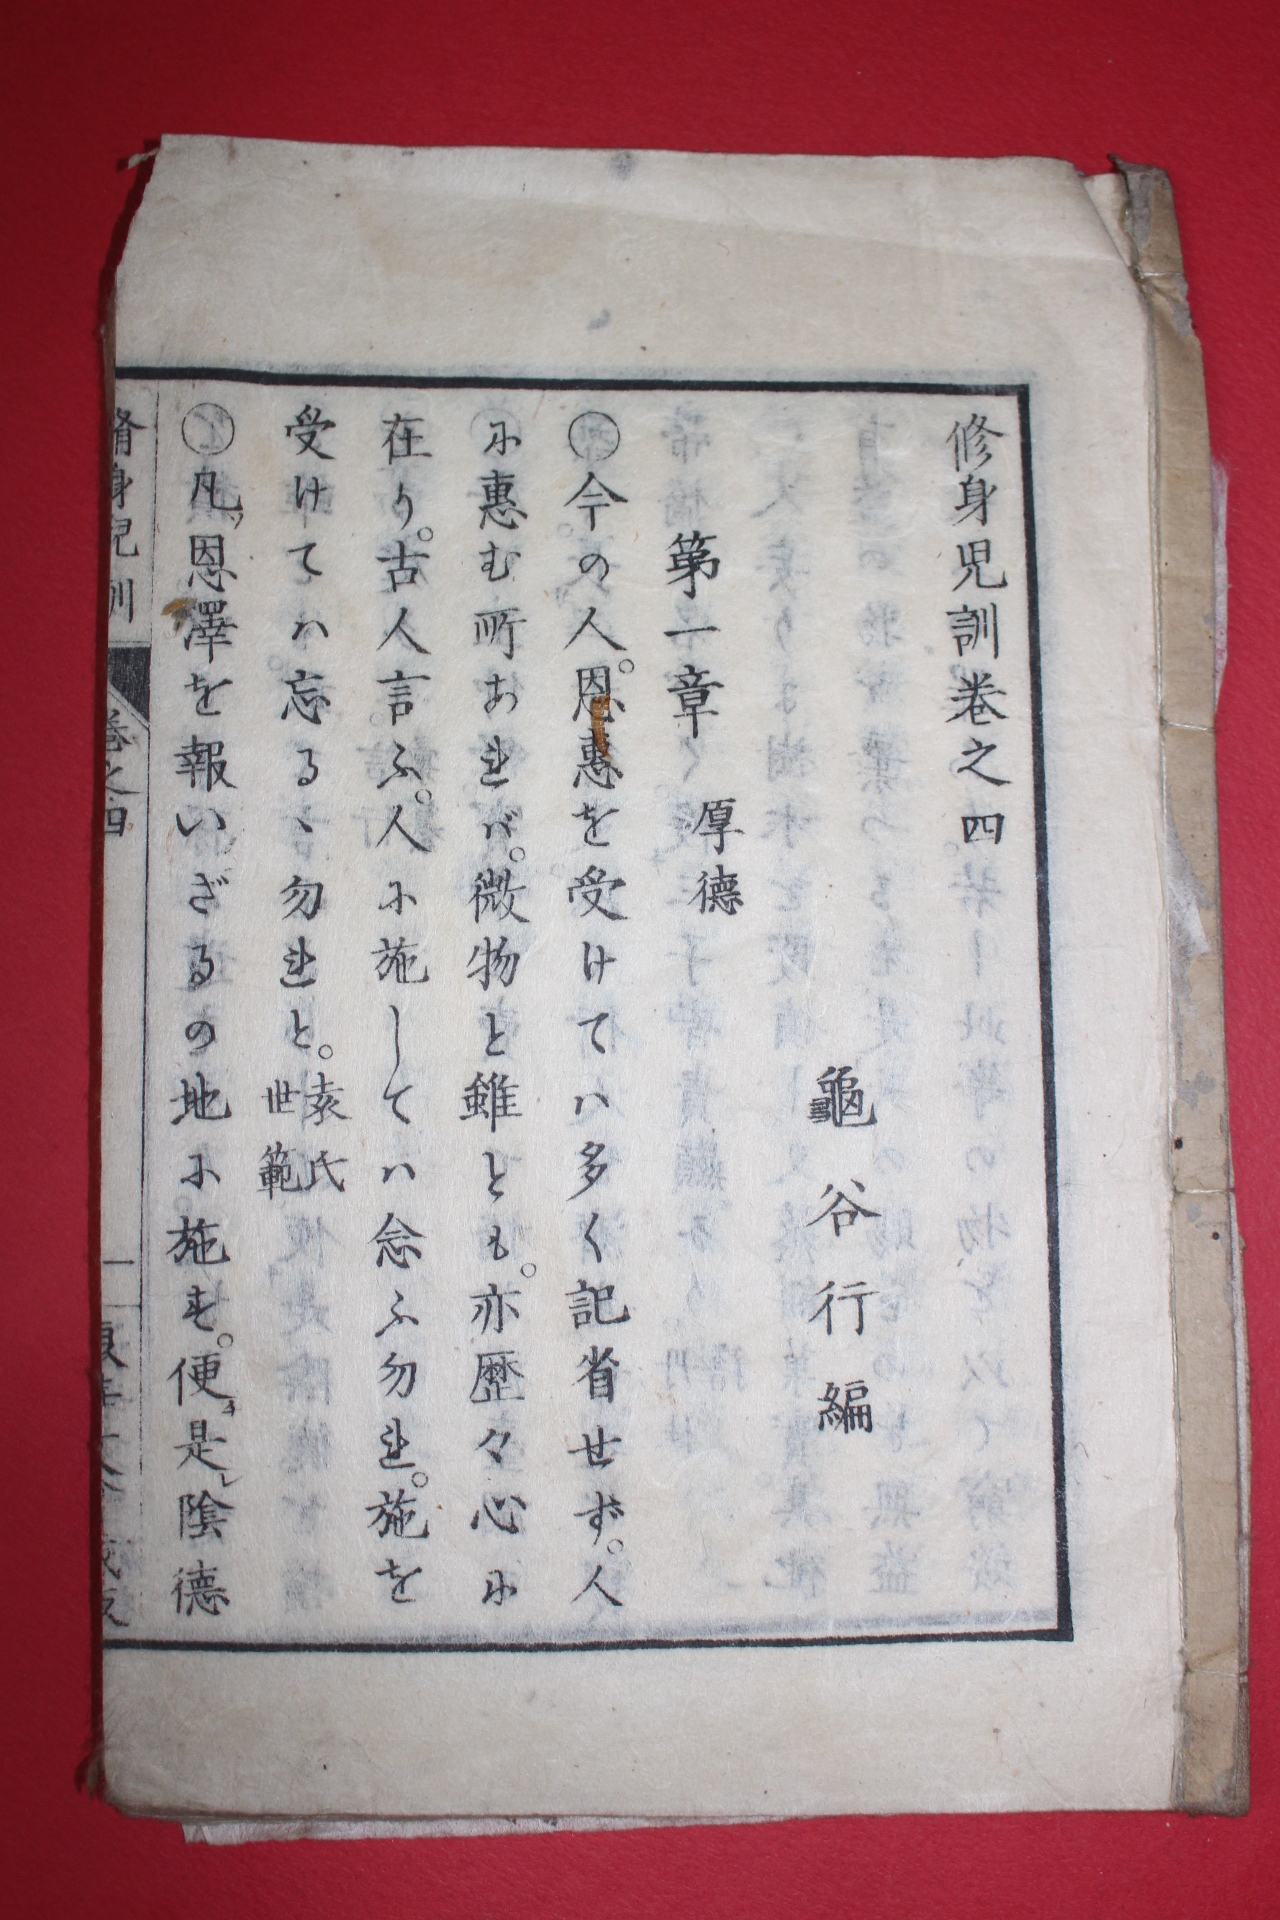 修身児訓卷之四
龜谷行編
第一章　厚德
○今の人。恩惠を受けてハ多く記省せず。人
に惠む所あれバ。微物と雖とも。亦歷々心に
在り。古人言ふ。人に施してハ念ふ勿れ。施を
受けてハ忘るゝ勿れと。袁氏世範
○凡ソ恩澤を報いざるの地に施す。便チ是レ陰德
脩身兒訓　卷之四　一